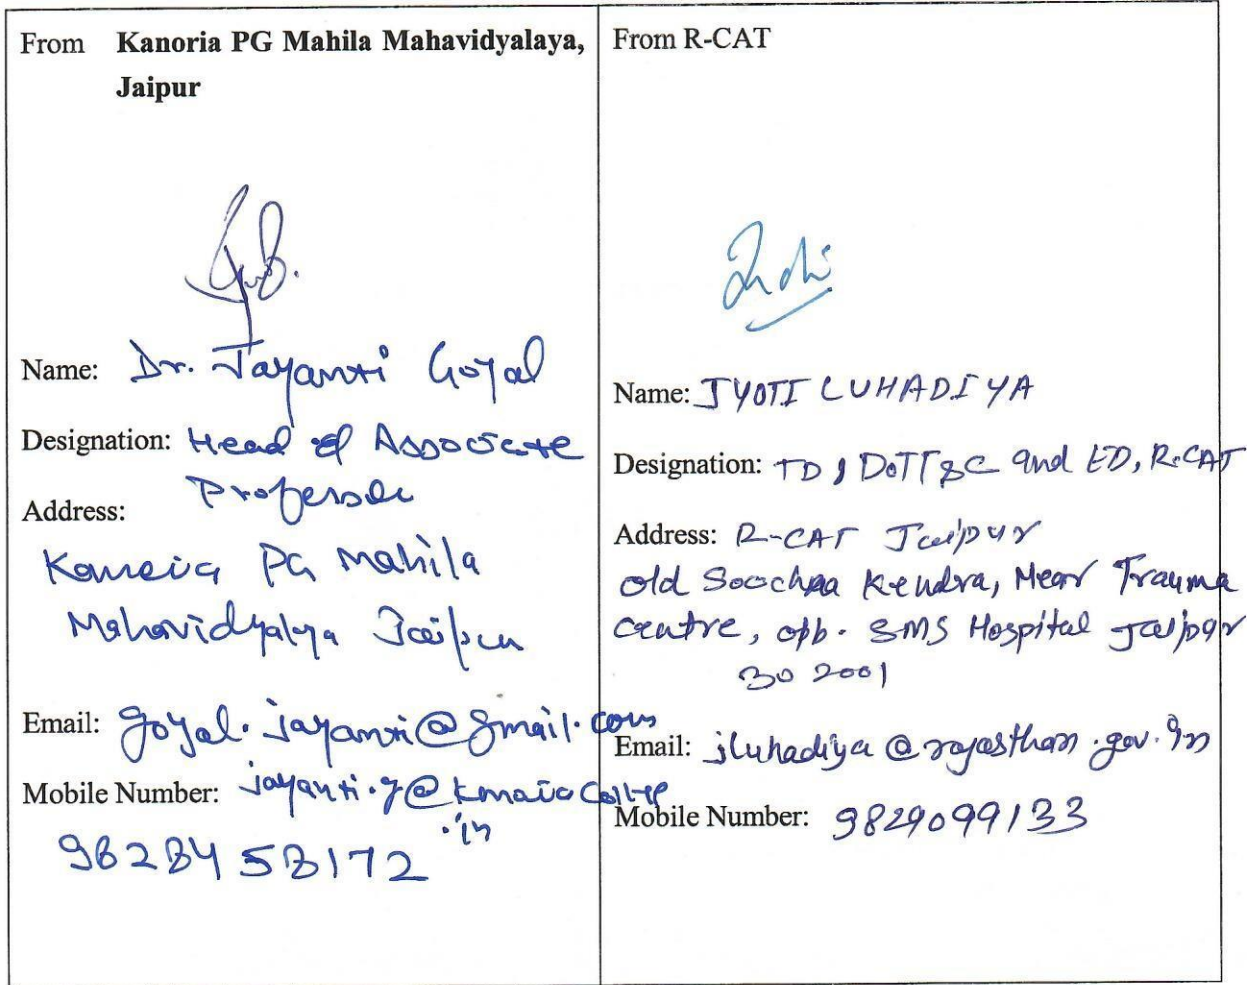 From Kanoria PG Mahila Mahavidyalaya,
Jaipur
Name: Dr. Jayanti Goyal
Designation: Head & Associate
Professor
Address:
Kanoria PG Mahila
Mahavidyalya Jaipur
Email: goyal.jayanti@gmail.com
Mobile Number: jayanti.g@kanoriacollege
.in
From R-CAT
Name: JYOTI LUHADIYA
Designation: TD, DoIT&C and ED, R-CAT
Address: R-CAT Jaipur
old Soochna Kendra, Near Trauma
Centre, opp. SMS Hospital Jaipur
302001
Email: jluhadiya@rajasthan.gov.in
Mobile Number: 9829099133